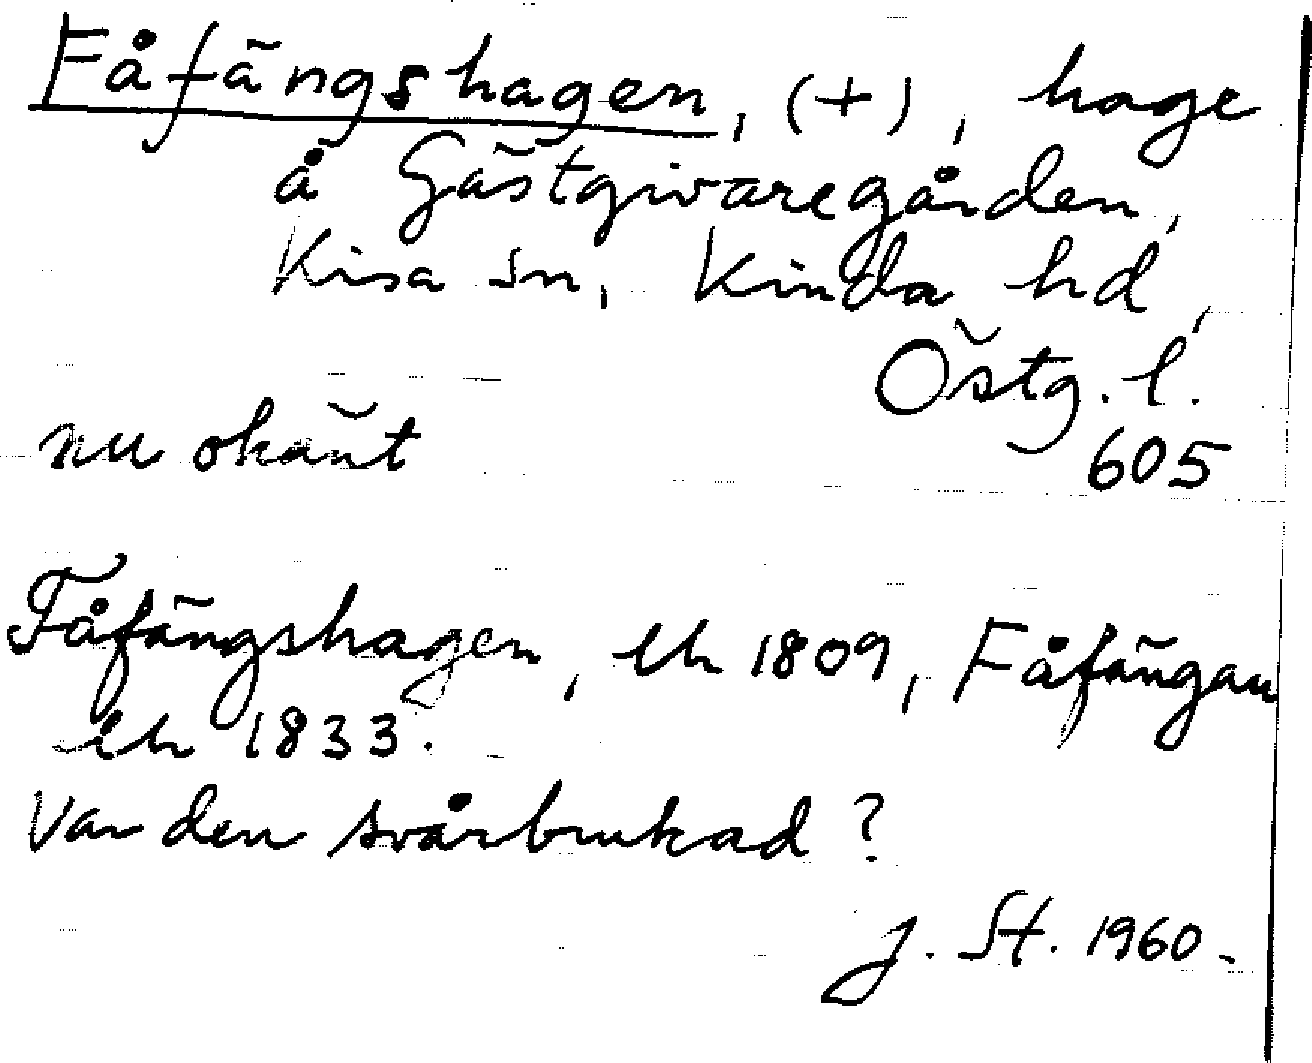 Fåfängshagen, (+), hage
å Gästgivaregården,
Kisa sn, Kinda hd,
Östg. l.
605
nu okänt
Fåfängshagen, lh 1809, Fåfängan
lh 1833.
Var den svårbrukad?
J. St. 1960.